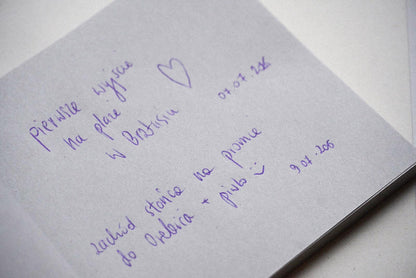 pierwsze wyjście
na plażę
w Bratusiu
07.07.2016
zachód słońca na promie
do Orebica + piwko :)
9.07.2016